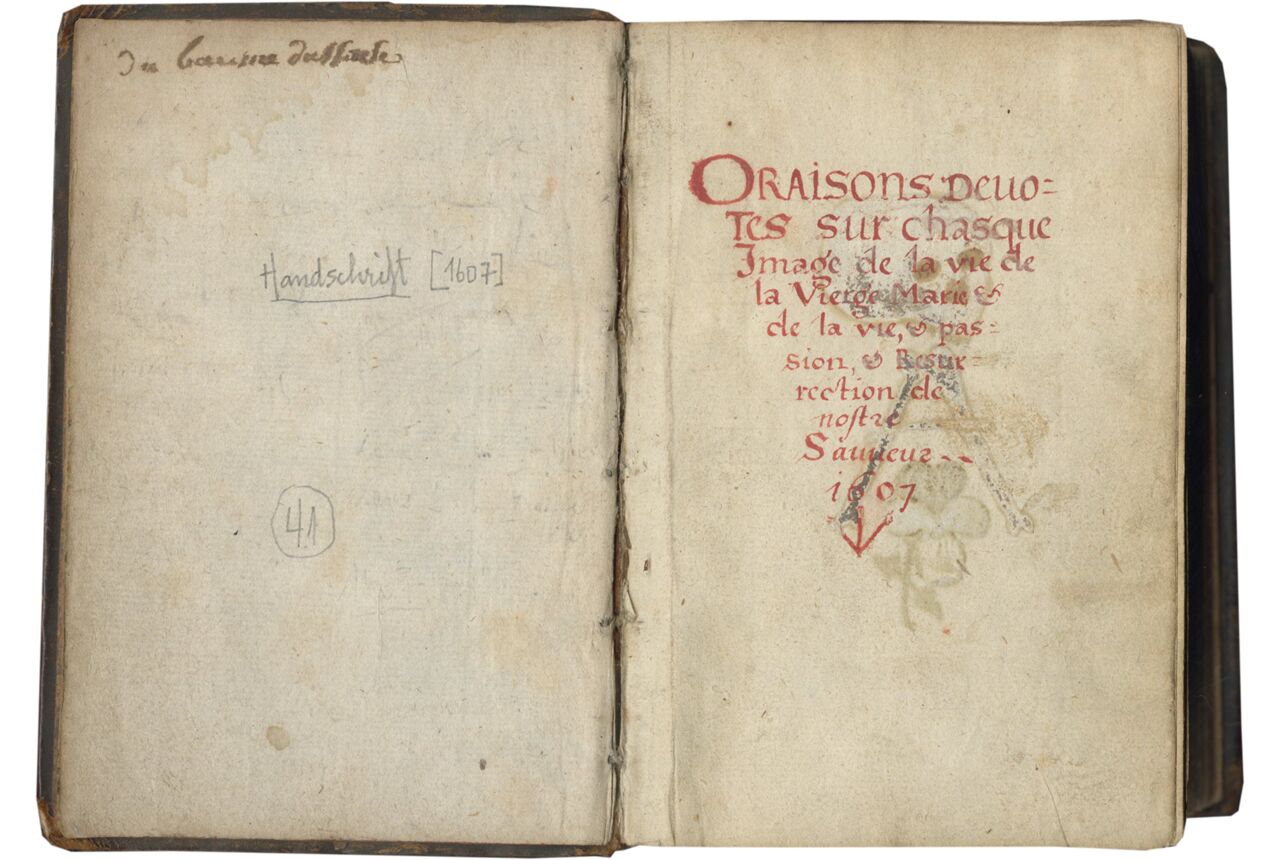 Handschrift [1607]
41
ORAISONS DEUO=
TES SUR chasque
Image de la vie de
la Vierge Marie &
de la vie, & pas=
sion, & Resur=
rection de
nostre
Sauueur
1607